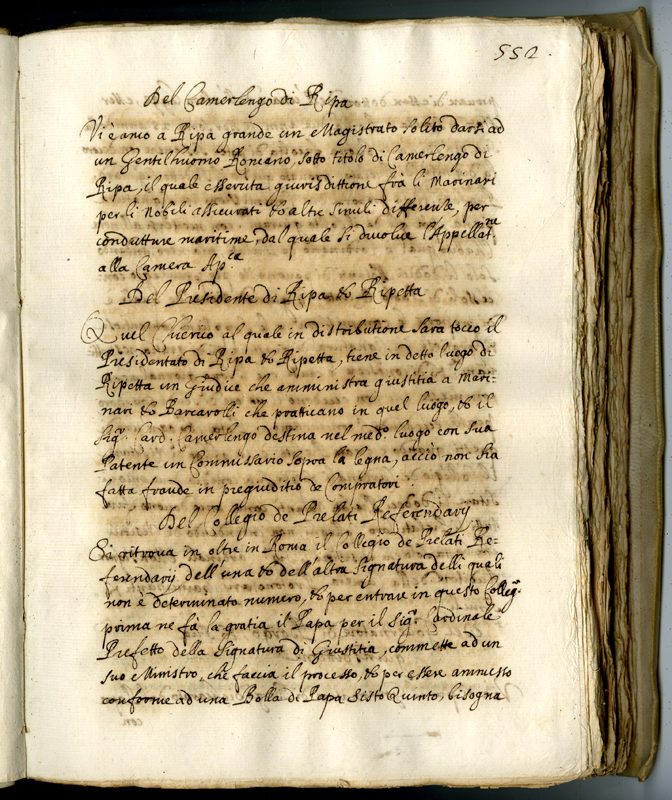 552.
Del Camerlengo di Ripa
Vi è anco a Ripa grande un Magistrato solito darsi ad
un Gentilhuomo Romano, sotto titolo di Camerlengo di
Ripa, il quale essercita giurisdittione frà li Marinari
per li Nobili assicurati et altre simili differenze, per
condutture maritime, dal quale si divolve l'Appellatne
alla Camera Apca
Del Presidente di Ripa et Ripetta
Quel Chierico al quale in distributione sara tocco il
Presidentato di Ripa et Ripetta, tiene in detto luogo di
Ripetta un Giudice che amministra giustitia a Mari=
nari et Barcaroli che praticano in quel luogo, et il
Sigr. Card. Camerlengo destina nel medo. luogo con sua
Patente un Commissario sopra la legna, acciò non sia
fatta fraude in pregiuditio de Compratori.
Del Collegio de Prelati Referendarij
Si ritrova in oltre in Roma il Collegio de Prelati Re=
ferendarij dell'una et dell'altra Signatura delli quali
non è determinato numero, et per entrare in questo Colleg.
prima ne fà la gratia il Papa per il Sigr. Cardinale
Prefetto della Signatura di Giustitia, commette ad un
suo Ministro, che faccia il processo, et per essere ammesso
conforme ad una Bolla di Papa Sisto Quinto, bisogna